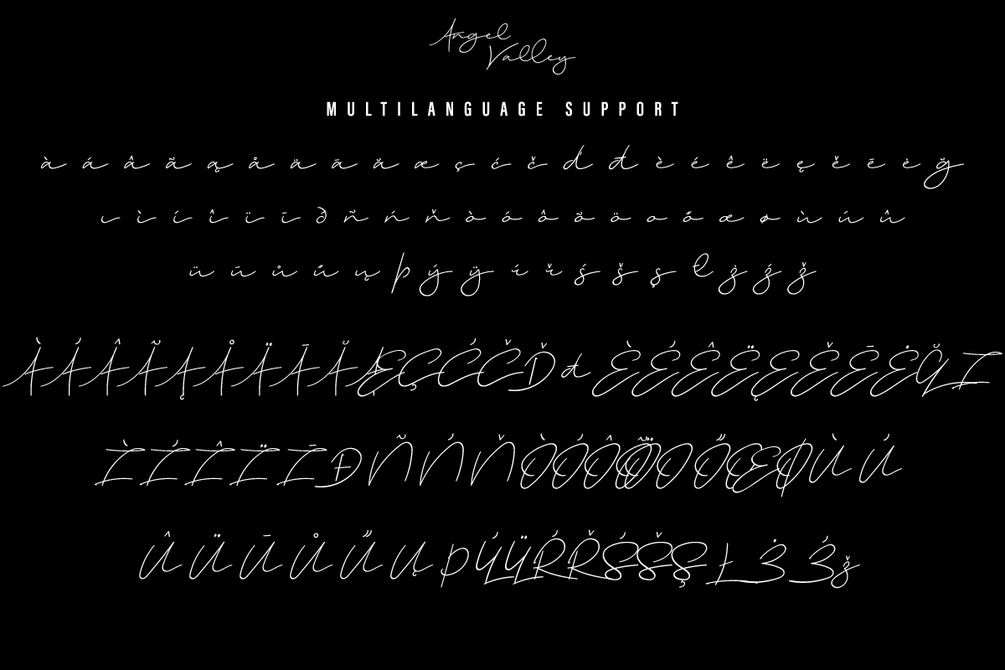 Angel
Valley
MULTILANGUAGE SUPPORT
à á â ã ą å ä ā ă æ ç ć č ď đ è é ê ë ę ě ē ė ğ
ı ì í î ï ī ð ñ ń ň ò ó ô ö ö o ő œ ø ù ú û
ü ū ů ű ų þ ý ÿ ŕ ř ś š ş ł ż ź ž
À Á Â Ã Ą Å Ä Ā Ă Æ Ç Ć Č Ď đ È É Ê Ë Ę Ě Ē Ė Ğ I
Ì Í Î Ï Ī Đ Ñ Ń Ň Ò Ó Ô Õ Ö Ő Œ Ø Ù Ú
Û Ü Ū Ů Ű Ų Þ Ý Ÿ Ŕ Ř Ś Š Ş Ł Ż Ź ž